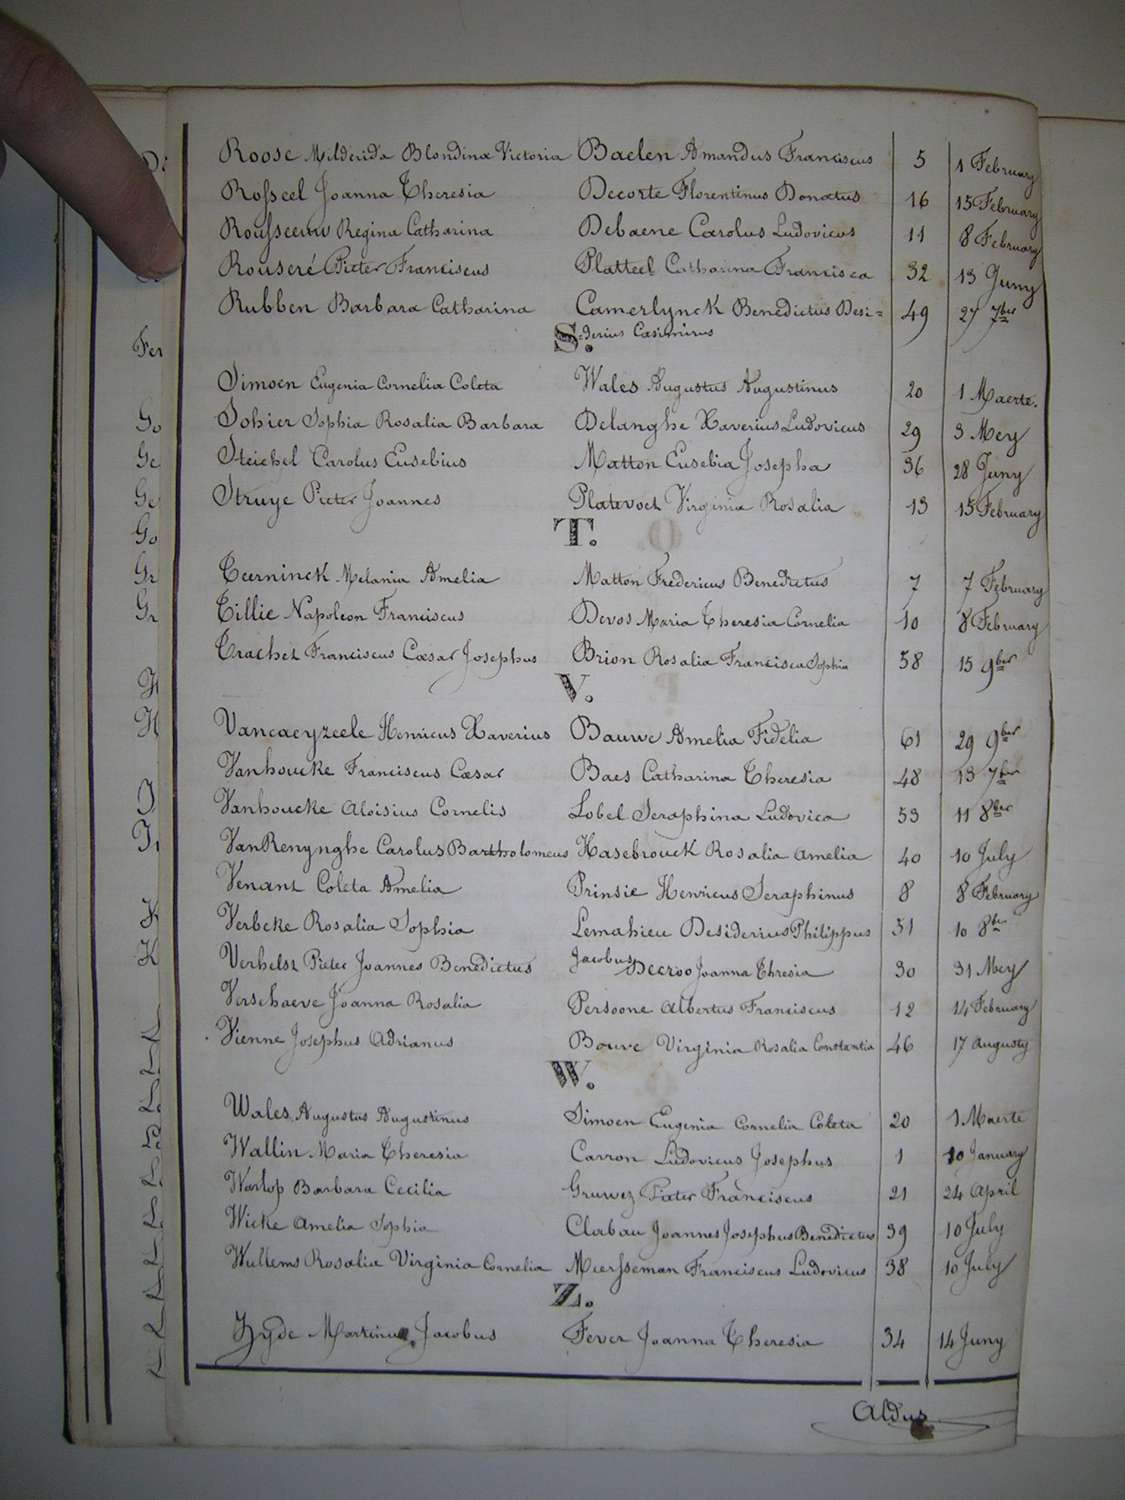 Roose Milderida Blondina Victoria Baelen Amandus Franciscus 5 1 February
Rosseel Joanna Theresia Decorte Florentinus Donatus 16 15 February
Rousseeuw Regina Catharina Debaene Carolus Ludovicus 11 8 February
Rouseré Pieter Franciscus Platteel Catharina Francisca 32 13 Juny
Rubben Barbara Catharina Camerlynck Benedictus Desi= 49 27 7ber
S. =derius Casimirus
Simoen Eugenia Cornelia Coleta Wales Augustus Augustinus 20 1 Maerte.
Sohier Sophia Rosalia Barbara Delanghe Xaverius Ludovicus 29 3 Mey
Steichel Carolus Eusebius Matton Eusebia Josepha 36 28 Juny
Struye Pieter Joannes Platevoet Virginia Rosalia 13 15 February
T.
Teerninck Melania Amelia Matton Fredericus Benedictus 7 7 February
Tillie Napoleon Franciscus Devos Maria Theresia Cornelia 10 8 February
Trachet Franciscus Cæsar Josephus Brion Rosalia Francisca Sophia 58 15 9ber
V.
Vancaeyzeele Henricus Xaverius Bauwe Amelia Fidelia 61 29 9ber
Vanhoucke Franciscus Cæsar Baes Catharina Theresia 48 13 7ber
Vanhoucke Aloisius Cornelis Lobel Seraphina Ludovica 53 11 8ber
VanRenynghe Carolus Bartholomeus Hasebrouck Rosalia Amelia 40 10 July
Venant Coleta Amelia Prinsie Henricus Seraphinus 8 8 February
Verbeke Rosalia Sophia Lemahieu Desiderius Philippus 51 10 8ber
Verhelst Pieter Joannes Benedictus Jacobus Decroo Joanna Thresia 30 31 Mey
Verschaeve Joanna Rosalia Persoone Albertus Franciscus 12 14 February
Vienne Josephus Adrianus Bouve Virginia Rosalia Constantia 46 17 Augusty
W.
Wales Augustus Augustinus Simoen Eugenia Cornelia Coleta 20 1 Maerte
Wallin Maria Theresia Carron Ludovicus Josephus 1 10 January
Warlop Barbara Cecilia Gruwez Pieter Franciscus 21 24 April
Wicke Amelia Sophia Clabau Joannes Josephus Benedictus 39 10 July
Wullems Rosalia Virginia Cornelia Meersseman Franciscus Ludovicus 38 10 July
Z.
Zyde Martinus Jacobus Fever Joanna Theresia 34 14 Juny
Aldus